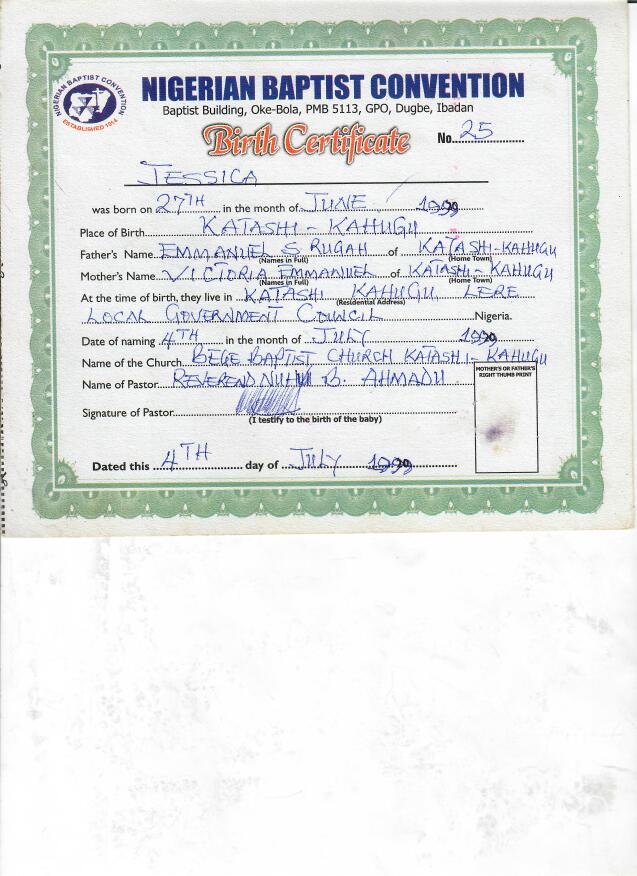 NIGERIAN BAPTIST CONVENTION
ESTABLISHED 1914
NIGERIAN BAPTIST CONVENTION
Baptist Building, Oke-Bola, PMB 5113, GPO, Dugbe, Ibadan
Birth Certificate
No. 25
JESSICA
was born on 27TH in the month of JUNE 1999
Place of Birth KATASHI - KAHUGU
Father's Name EMMANUEL S RUGAH of KATASHI-KAHUGU
(Names in Full) (Home Town)
Mother's Name VICTORIA EMMANUEL of KATASHI-KAHUGU
(Names in Full) (Home Town)
At the time of birth, they live in KATASHI KAHUGU, LERE
(Residential Address)
LOCAL GOVERNMENT COUNCIL Nigeria.
Date of naming 4TH in the month of JULY 1999
Name of the Church BEGE BAPTIST CHURCH KATASHI - KAHUGU
Name of Pastor REVEREND NUHU B. AHMADU
MOTHER'S OR FATHER'S
RIGHT THUMB PRINT
Signature of Pastor
(I testify to the birth of the baby)
Dated this 4TH day of JULY 1999